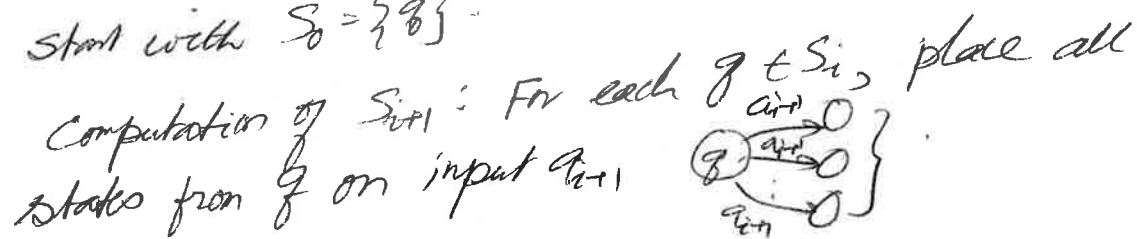 Start with S₀ = {q}.
Computation of Sᵢ₊₁ : For each q ∈ Sᵢ, place all
states from q on input aᵢ₊₁
aᵢ₊₁
q aᵢ₊₁
aᵢ₊₁